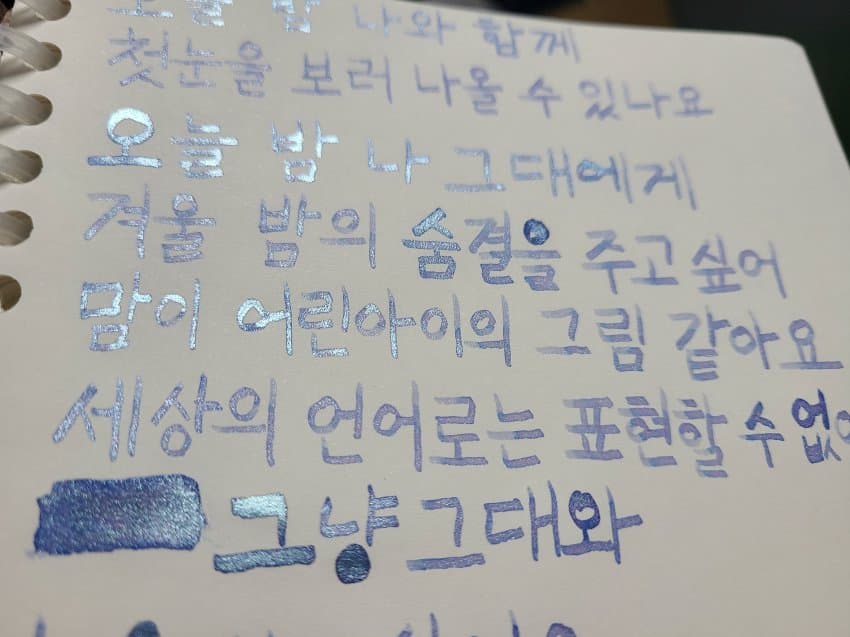 오늘 밤 나와 함께
첫눈을 보러 나올 수 있나요
오늘 밤 나 그대에게
겨울 밤의 숨결을 주고 싶어
맘이 어린아이의 그림 같아요
세상의 언어로는 표현할 수 없
그냥 그대와